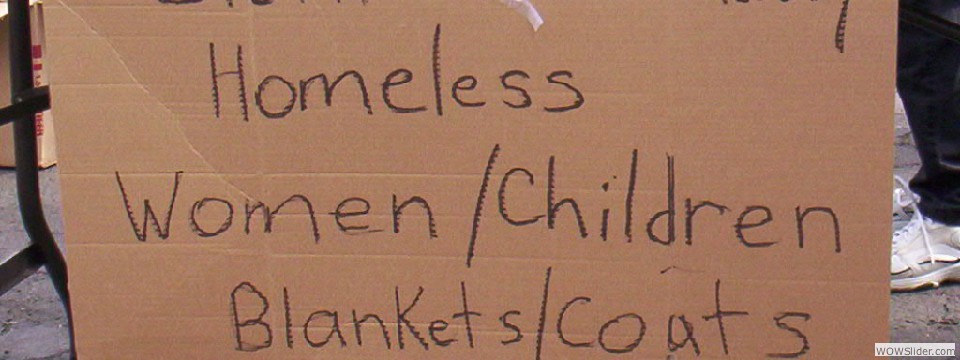 Homeless
Women/Children
Blankets/Coats
WOWSlider.com